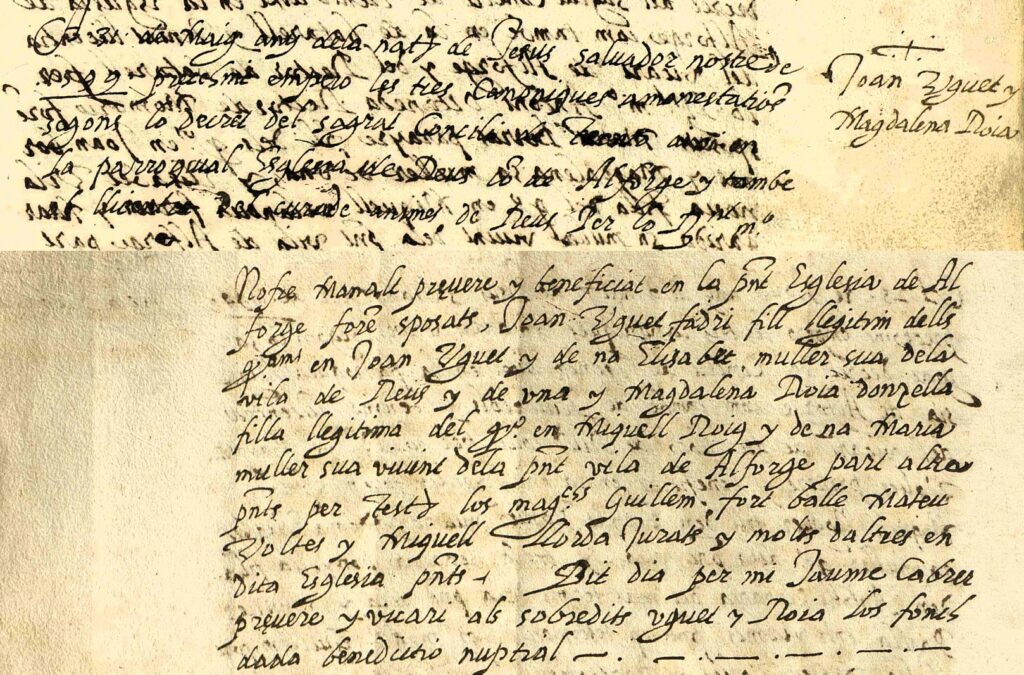 A 31 de Maig any dela nat) de Jesus salvador nostre de
1599 precesint empero les tres Canoniques amonestations
segons lo decret del sagrat Concili de Trento axi en
la parroquial Esglesia de Deus co de Alforge y tambe
ab llicentia del cura de animes de Reus Per lo R.nt m.º
Joan Vguet y
Magdalena Roia
Nofre Manalt prevere y beneficiat en la pnt Esglesia de Al
forge fore sposats, Joan Vguet fadri fill llegitim dells
qºams en Joan Vguet y de na Elisabet muller sua dela
vila de Reus y de vna y Magdalena Roia donzella
filla llegitima del qº. en Miquell Roig y de na Maria
muller sua vivint dela pnt vila de Alforge part altra
pnts per Test) los magchs Guillem fort balle Mateu
Voltes y Miquell Llorda Jurats y molts daltres en
dita Esglesia pnts - Dit dia per mi Jaume Cabrer
prevere y vicari als sobredits vguet y Roia los fonch
dada benedictio nuptial —. —. —. —. —. —